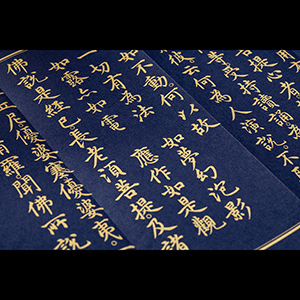 提心者
等受持讀誦
彼。云何為人演說。不
如不動。何以故
一切有為法 如夢幻泡影
如露亦如電 應作如是觀
佛說是經已。長老須菩提。及諸
丘尼。優婆塞。優婆夷。
羅。聞佛所說